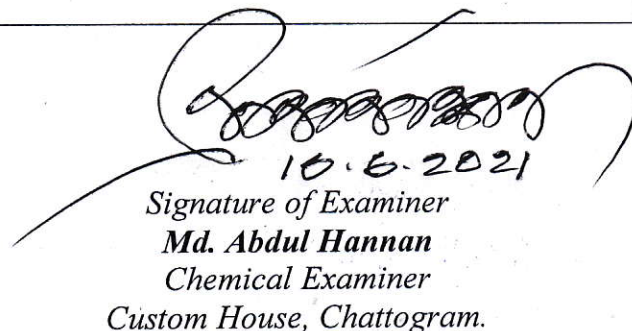 10.6.2021
Signature of Examiner
Md. Abdul Hannan
Chemical Examiner
Custom House, Chattogram.